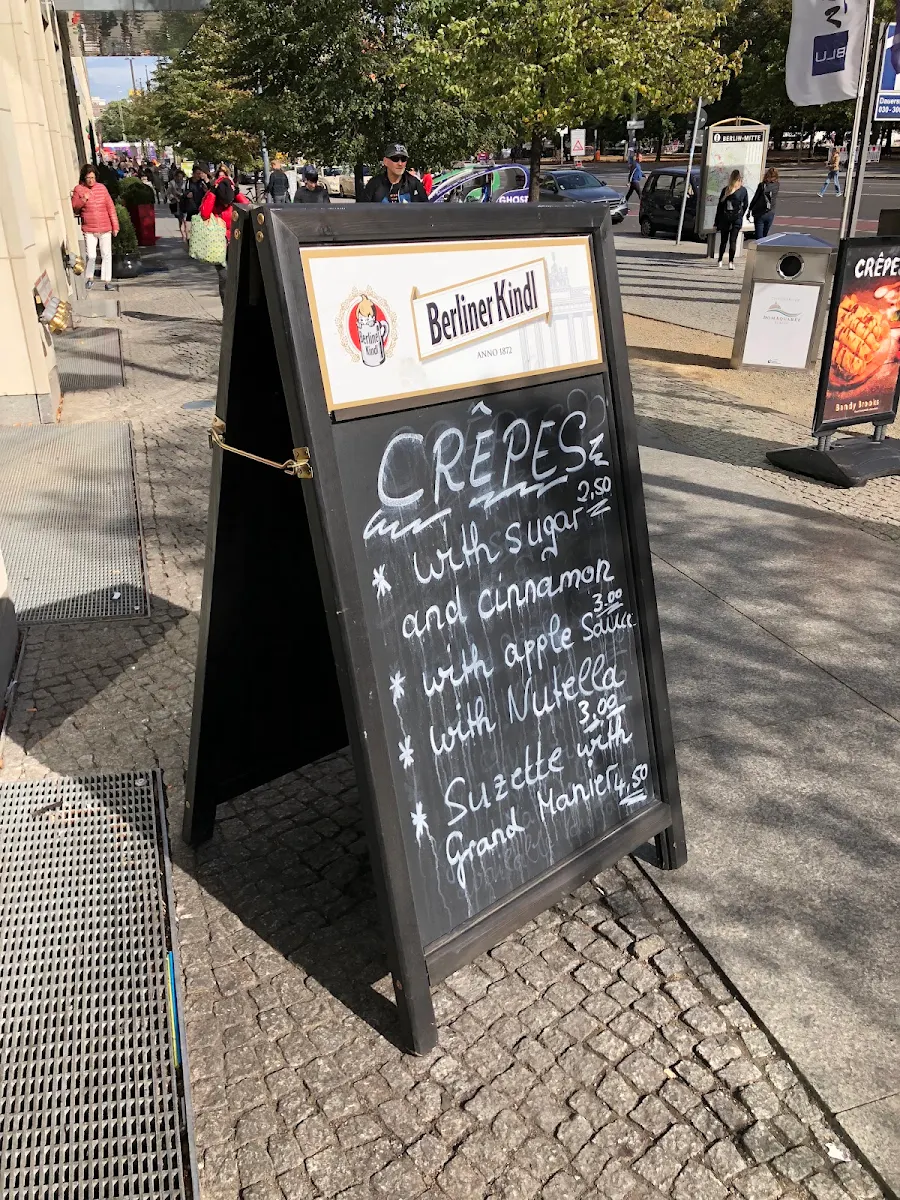 Berliner Kindl
Berliner
Kindl
ANNO 1872
CRÊPES
* with sugar 2,50
and cinnamon
* with apple Sauce 3.00
* with Nutella
3,00
* Suzette with
Grand Manier 4,50
BERLIN-MITTE
GHOST
BLU
CRÊPE
Bandy Brooks
Dauer
030-30